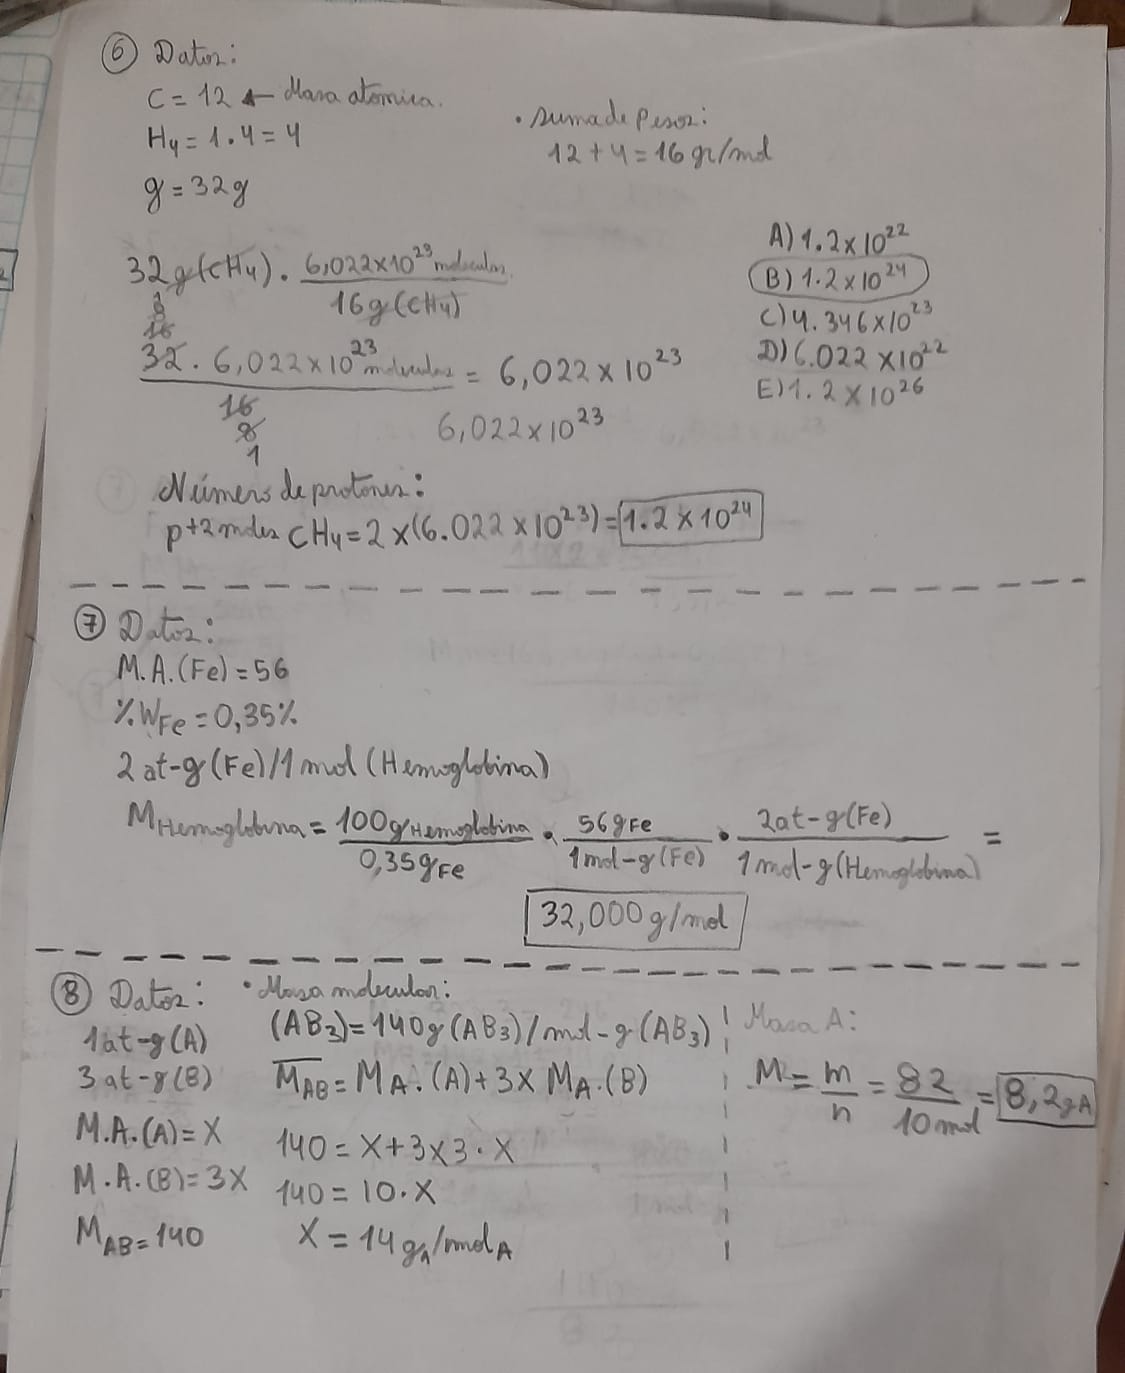 6 Datos:
C = 12 ← Masa atomica.
H4 = 1.4 = 4
g = 32g
• suma de pesos:
12 + 4 = 16 gr/mol
32g(CH4) . 6,022x10^23 moleculas / 16g(CH4)
8
16
32 . 6,022 x 10^23 moleculas / 16 = 6,022 x 10^23
8
1
6,022 x 10^23
A) 1.2 x 10^22
B) 1.2 x 10^24
C) 4.346 x 10^23
D) 6.022 x 10^22
E) 1.2 x 10^26
Número de protones:
p+2 moles CH4 = 2 x (6.022 x 10^23) = 1.2 x 10^24
7 Datos:
M.A.(Fe) = 56
%WFe = 0,35%
2 at-g (Fe)/1 mol (Hemoglobina)
MHemoglobina = 100g Hemoglobina / 0,35gFe . 56gFe / 1mol-g(Fe) . 2at-g(Fe) / 1mol-g(Hemoglobina) =
32,000 g/mol
8 Datos:
1at-g(A)
3 at-g(B)
M.A.(A) = X
M.A.(B) = 3X
MAB = 140
• Masa molecular:
(AB3) = 140g (AB3)/mol-g (AB3)
MAB = MA.(A) + 3 x MA.(B)
140 = X + 3x3 . X
140 = 10 . X
X = 14 gA/molA
Masa A:
M = m/n = 82/10mol = 8,2gA